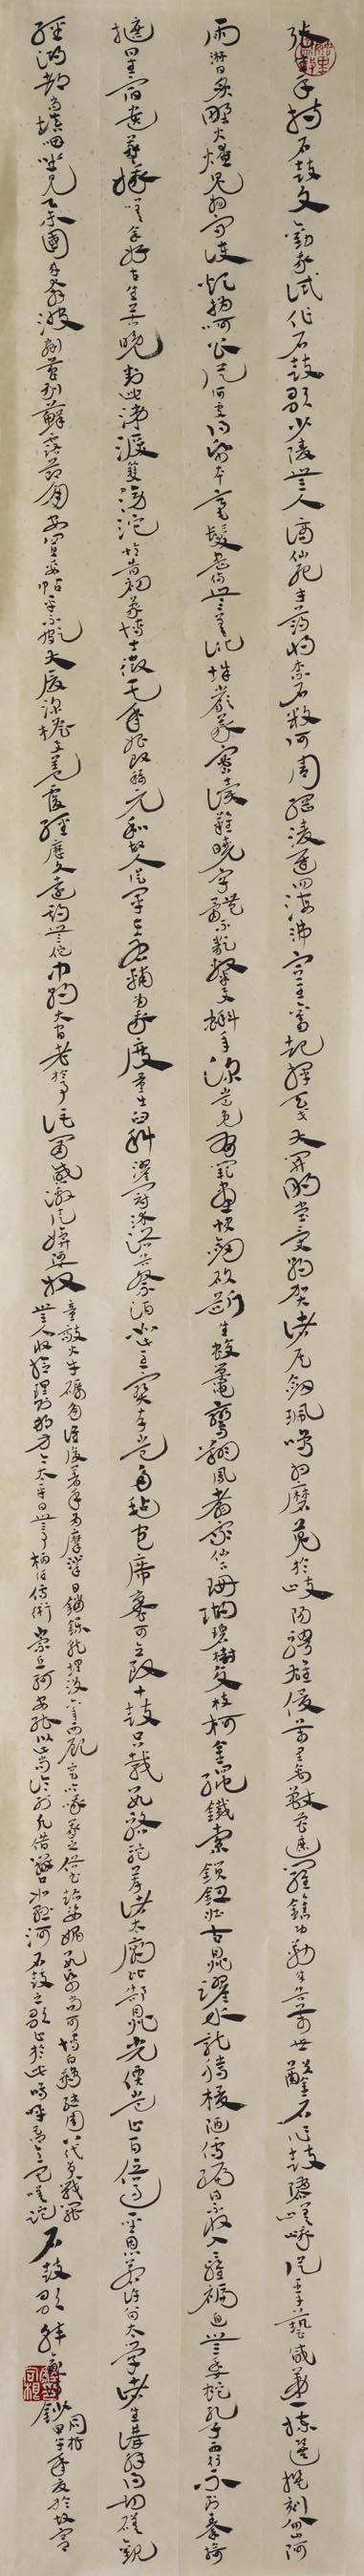 張生手持石鼓文勸我試作石鼓歌少陵無人謫仙死才薄將奈石鼓何周綱凌遲四海沸宣王憤起揮天戈大開明堂受朝賀諸侯劍珮鳴相磨蒐於岐陽騁雄俊萬里禽獸皆遮羅鐫功勒成告萬世鑿石作鼓隳嵯峨從臣才藝咸第一揀選撰刻留山阿
雨淋日炙野火燎鬼物守護煩撝呵公從何處得紙本毫髮盡備無差訛辭嚴義密讀難曉字體不類隸與蝌年深豈免有缺畫快劍斫斷生蛟鼉鸞翔鳳翥眾仙下珊瑚碧樹交枝柯金繩鐵索鎖鈕壯古鼎躍水龍騰梭陋儒編詩不收入二雅褊迫無委蛇孔子西行不到秦掎
摭星宿遺羲娥嗟余好古生苦晚對此涕淚雙滂沱憶昔初蒙博士徵其年始改稱元和故人從軍在右輔為我度量掘臼科濯冠沐浴告祭酒如此至寶存豈多氈包席裹可立致十鼓只載數駱駝薦諸太廟比郜鼎光價豈止百倍過聖恩若許留太學諸生講解得切磋觀
經鴻都尚填咽坐見舉國來奔波剜苔剔蘚露節角安置妥帖平不頗大廈深檐與蓋覆經歷久遠期無佗中朝大官老於事詎肯感激徒媕婀牧
童敲火牛礪角誰復著手為摩挲日銷月鑠就埋沒六年西顧空吟哦羲之俗書趁姿媚數紙尚可博白鵝繼周八代爭戰罷
無人收拾理則那方今太平日無事柄任儒術崇丘軻安能以此尚論列願借辯口如懸河石鼓之歌止於此嗚呼吾意其蹉跎
石鼓歌韓愈鈔
甲午年夏於故宮